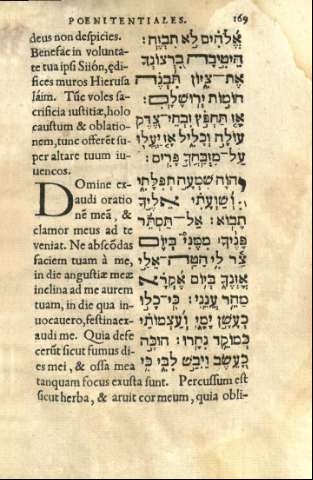 POENITENTIALES. 169
deus non despicies.
Benefac in volunta-
te tua ipsi Siión, ędi-
fices muros Hierusa
láim. Tūc voles sa-
crificia iustitiæ, holo
caustum & oblatio-
nem, tunc offerēt su-
per altare tuum iu-
vencos.
Domine ex-
audi oratio
nē meā, &
clamor meus ad te
veniat. Ne abscōdas
faciem tuam à me,
in die angustiæ meæ
inclina ad me aurem
tuam, in die qua in-
uocauero, festina ex-
audi me. Quia defe
cerūt sicut fumus di-
es mei, & ossa mea
tanquam focus exusta sunt. Percussum est
sicut herba, & aruit cor meum, quia obli-
אֱלֹהִים לֹא תִבְזֶה:
הֵיטִיבָה בִרְצוֹנְךָ
אֶת־צִיּוֹן תִּבְנֶה
חוֹמוֹת יְרוּשָׁלָםִ:
אָז תַּחְפֹּץ זִבְחֵי־צֶדֶק
עוֹלָה וְכָלִיל אָז יַעֲלוּ
עַל־מִזְבַּחֲךָ פָרִים:
יְהוָה שִׁמְעָה תְפִלָּתִי
וְשַׁוְעָתִי אֵלֶיךָ
תָבוֹא: אַל־תַּסְתֵּר
פָּנֶיךָ מִמֶּנִּי בְּיוֹם
צַר לִי הַטֵּה־אֵלַי
אָזְנֶךָ בְּיוֹם אֶקְרָא
מַהֵר עֲנֵנִי: כִּי־כָלוּ
כְעָשָׁן יָמָי וְעַצְמוֹתַי
כְּמוֹקֵד נִחָרוּ: הוּכָּה
כָעֵשֶׂב וַיִּבַשׁ לִבִּי כִּי